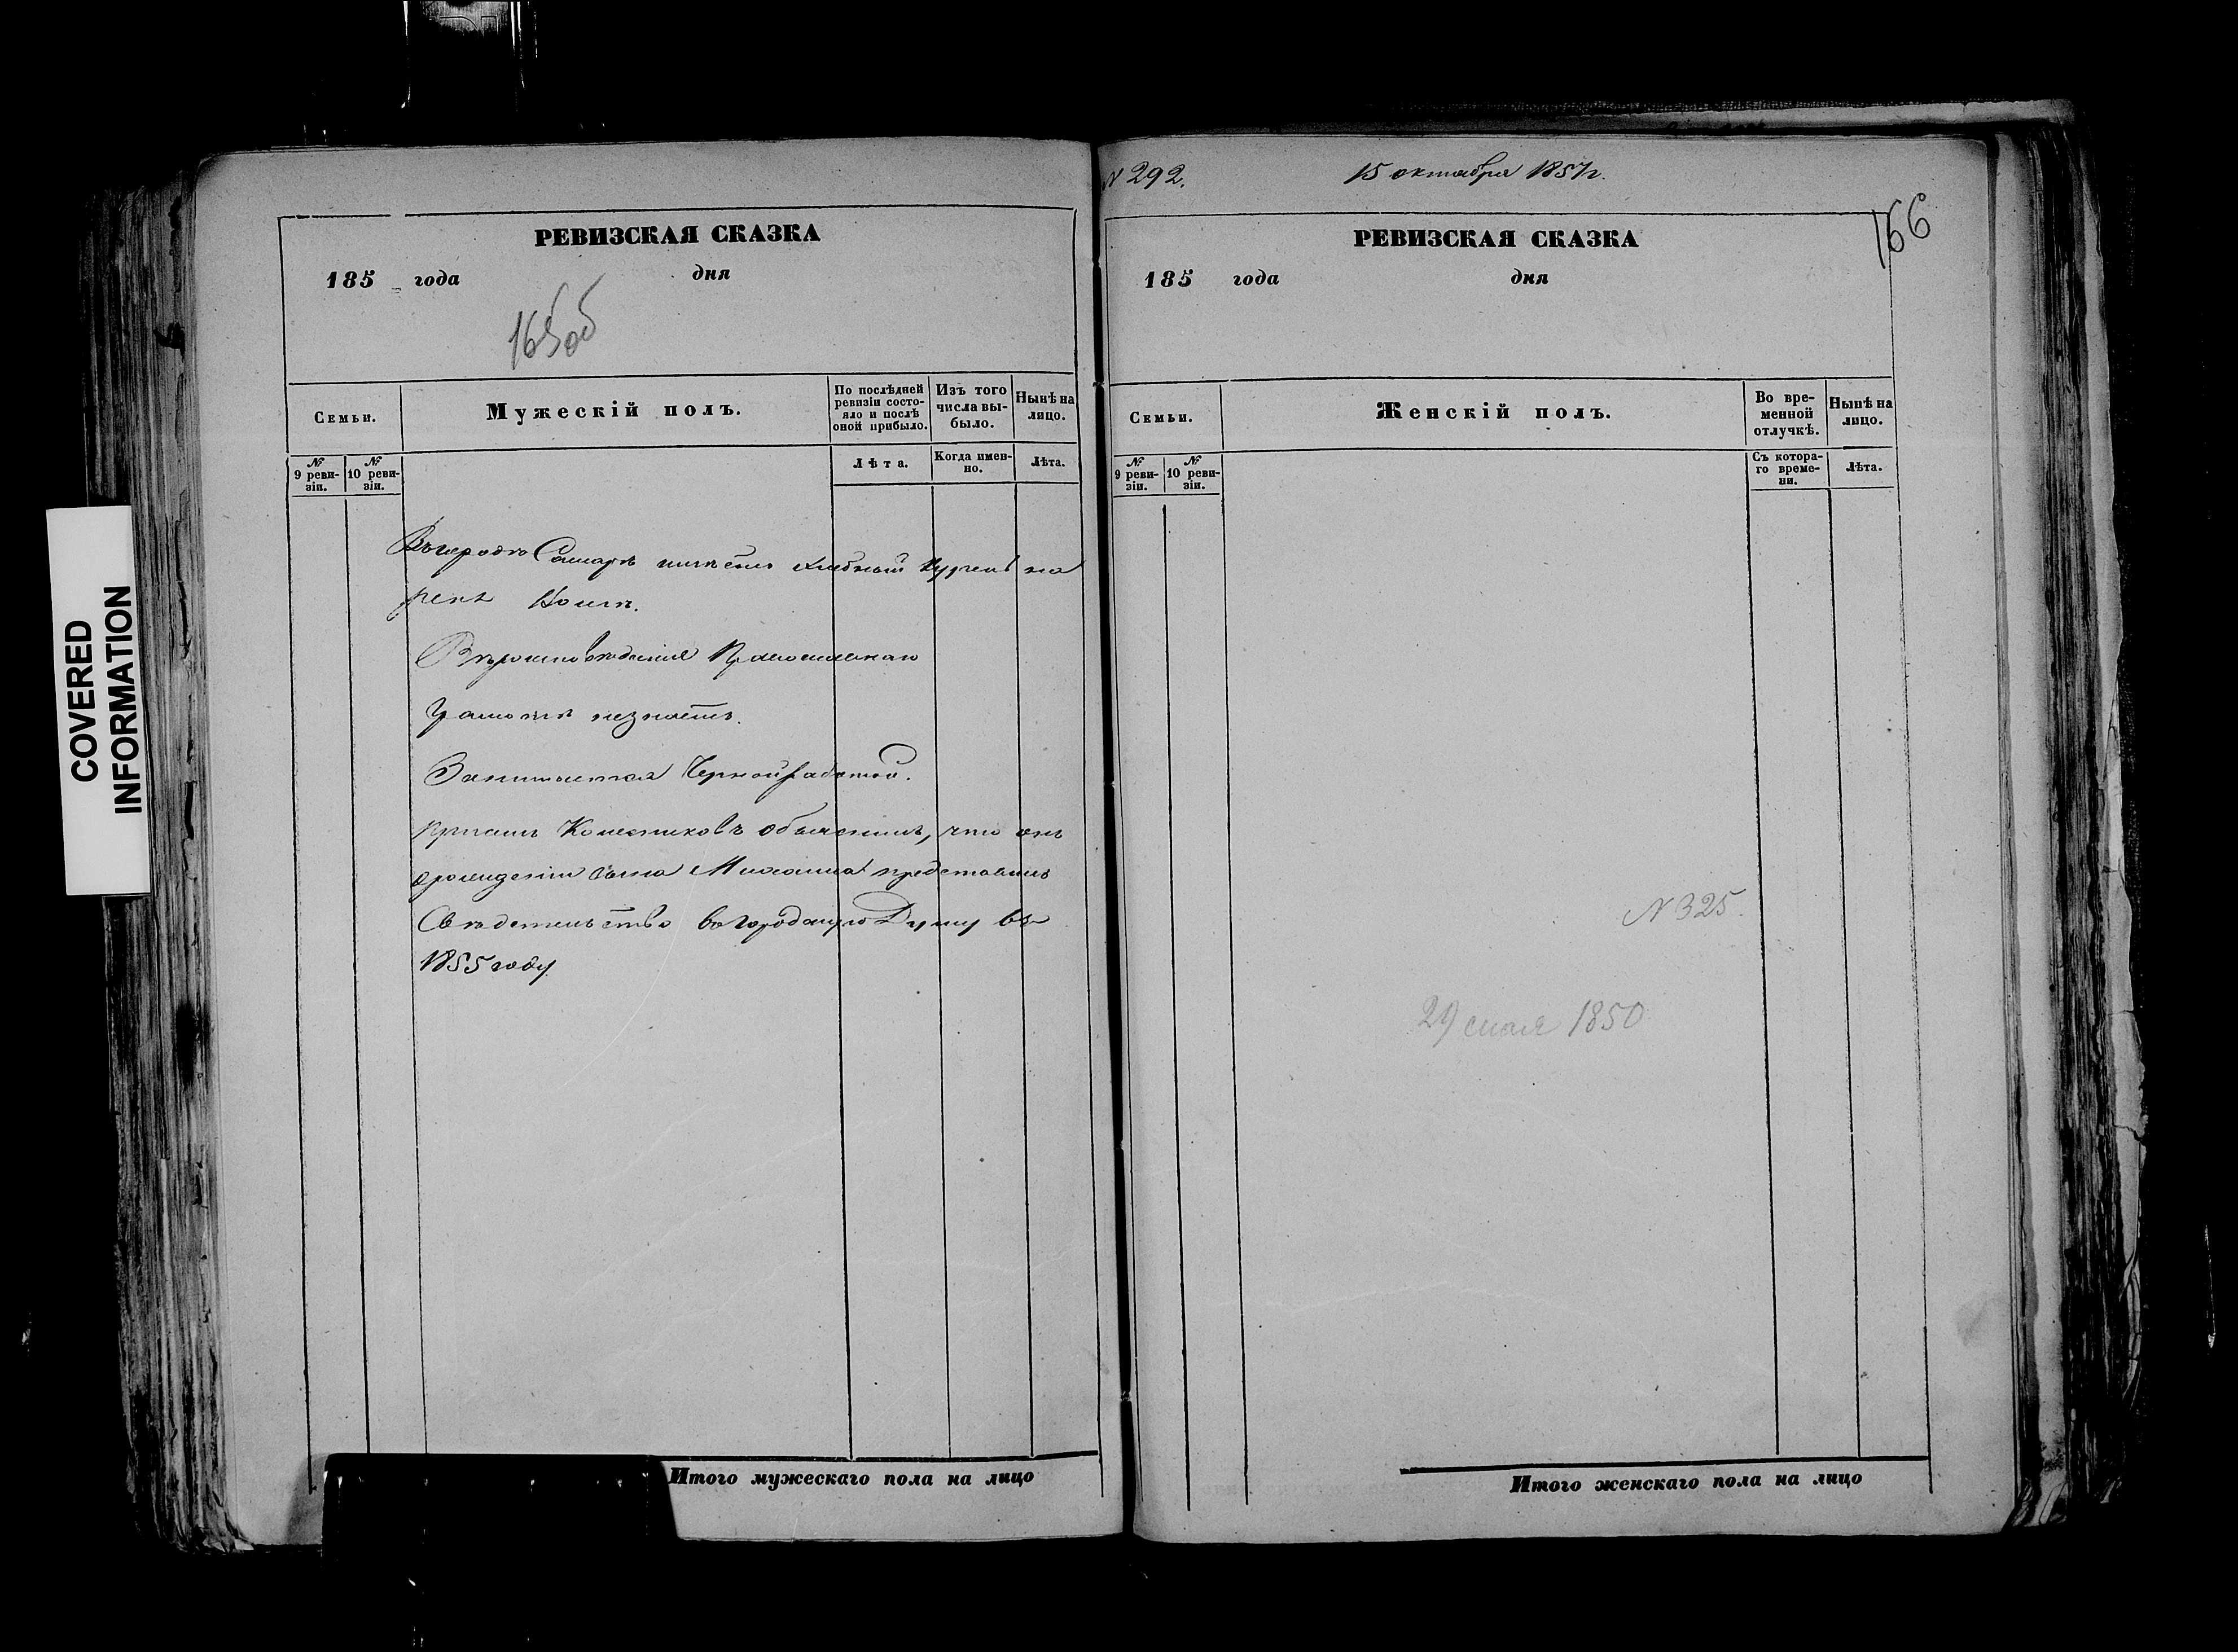 РЕВИЗСКАЯ СКАЗКА
185 года дня
165об
Семьи.
Мужескій полъ.
По послѣдней ревизіи состояло и послѣ оной прибыло.
Изъ того числа выбыло.
Нынѣ на лицо.
№ 9 ревизіи.
№ 10 ревизіи.
Лѣта.
Когда именно.
Лѣта.
Въ городѣ Самарѣ имѣетъ хлѣбный курень на
рекѣ Волгѣ.
Вѣроисповѣданія Православнаго
Грамотѣ незнаетъ.
Занимается Черной работой.
Причемъ Колесниковъ объяснилъ, что онъ
орождении сына Михаила представилъ
Свѣдетельство въ городскую Думу въ
1855 году
Итого мужескаго пола на лицо
N 292.
15 октября 1857 г.
166
РЕВИЗСКАЯ СКАЗКА
185 года дня
Семьи.
Женскій полъ.
Во временной отлучкѣ.
Нынѣ на лицо.
№ 9 ревизіи.
№ 10 ревизіи.
Съ котораго времени.
Лѣта.
N 325.
29 мая 1850
Итого женскаго пола на лицо
COVERED
INFORMATION